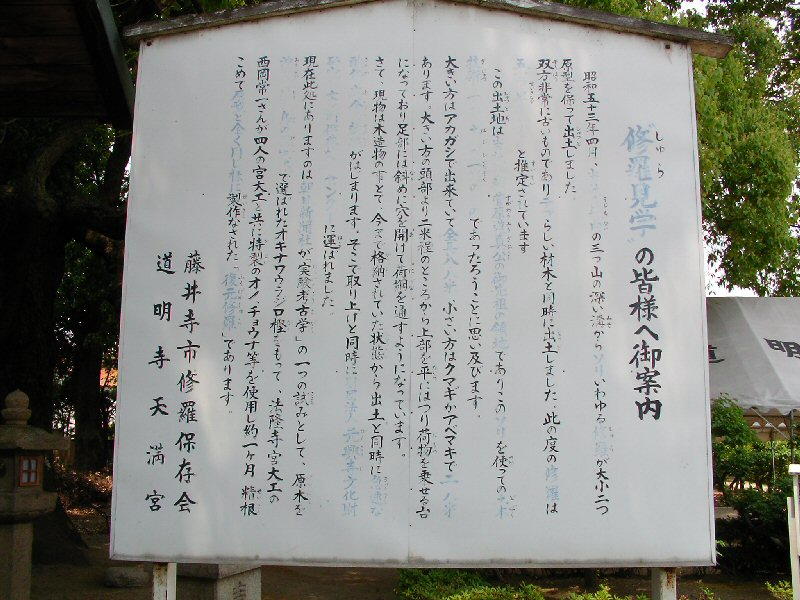 "修羅見学"の皆様へ御案内
しゅら
昭和五十三年四月、の三つ山の深い濠からソリいわゆる修羅が大小二つ
原型を保って出土しました
双方非常に古いものでありらしい材木と同時に出土しました、此の度の修羅は
と推定されています
この出土地は菅原道真公の御先祖の領地でありこのソリを使っての土木
であったろうことに思い及びます。
大きい方はアカガシで出来ていて全長八・八米、小さい方はクヌギかアベマキで二・八米
あります。大きい方の頭部より二米程のところから上部を平にはつり荷物を乗せる台
になっており足部には斜めに穴を開けて荷綱を通すようになっています。
さて、現物は木造物の事とて、今まで格納されていた状態から出土と同時に急速な
がはじまります。そこで取り上げと同時に元興寺文化財
に運ばれました
現在此処にありますのは朝日新聞社が「実験考古学」の一つの試みとして、原木を
で選ばれたオキナワウラジロ樫をもって、法隆寺宮大工の
西岡常一さんが四人の宮大工と共に特製のオノ、チョウナ等を使用し約一ヶ月、精根
こめて原型と全く同じ様に製作なされた"復元修羅"であります。
藤井寺市修羅保存会
道明寺天満宮
道
明